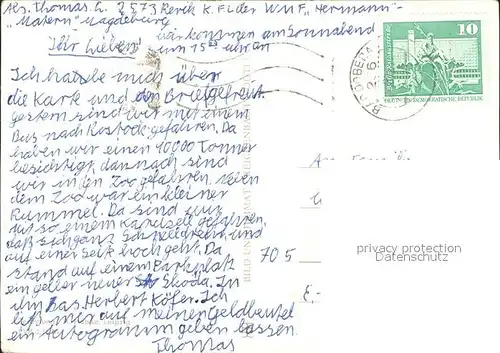 Abs. Thomas G. 2573 Rerik K. Fl der WMF „Hermann-
„Matern" Magdeburg
Wir kommen am Sonnabend
Ihr Lieben! um 15²³ Uhr an
Ich habe mich über
die Karte und den Brief gefreut.
Gestern sind wir mit einem
Bus nach Rostock gefahren. Da
haben wir einen 10 000 Tonner
besichtigt, dannach sind
wir in den Zoo gefahren. Neben
dem Zoo war ein kleiner
Rummel. Da sind wir
auf so einem Karusell gefahren,
daß sich ganz schnell dreht und
auf einer Seite hochgeht. Da
stand auf einem Parkplatz
ein gelber neuer Skoda. In
ihm saß Herbert Köfer. Ich
ließ mir auf meinen Geldbeutel
ein Autogramm geben lassen.
Thomas
10
DEUTSCHE DEMOKRATISCHE REPUBLIK
705
privacy protection
Datenschutz